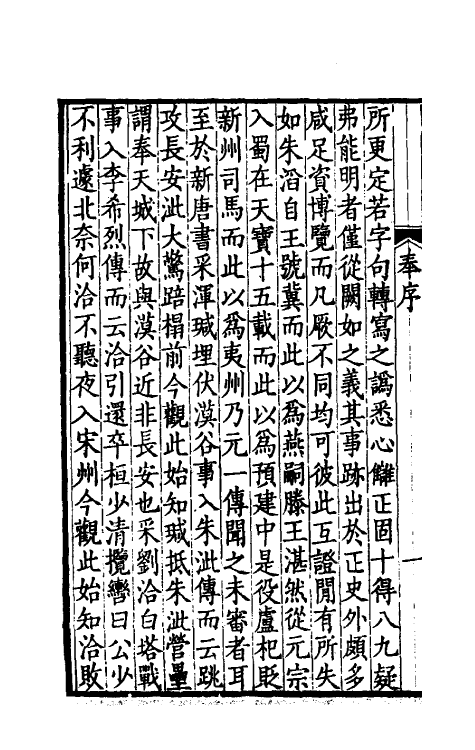 奉序
所更定若字句轉寫之譌悉心讎正固十得八九疑
弗能明者僅從闕如之義其事跡出於正史外頗多
咸足資博覽而凡厥不同均可彼此互證閒有所失
如朱滔自王號冀而此以爲燕嗣滕王湛然從元宗
入蜀在天寶十五載而此以爲預建中是役盧杞貶
新州司馬而此以爲夷州乃元一傳聞之未審者耳
至於新唐書采渾瑊埋伏漠谷事入朱泚傳而云跳
攻長安泚大驚踣榻前今觀此始知瑊抵朱泚營壘
謂奉天城下故與漠谷近非長安也采劉洽白塔戰
事入李希烈傳而云洽引還卒桓少清攬轡曰公少
不利遽北奈何洽不聽夜入宋州今觀此始知洽敗